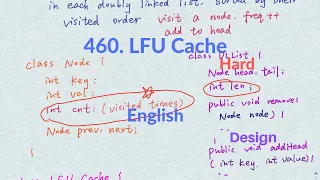 in each doubly linked list, sorted by their
visited order visit a node. freq++
add to head
460. LFU Cache
class Node {
int key;
int val;
int cnt; (visited times)
Node prev. next;
}
class DLList {
Hard
Node head. tail;
int len;
public void remove(
Node node) {
}
English
Design
public void addHead
(int key, int value) {
class LFU Cache {